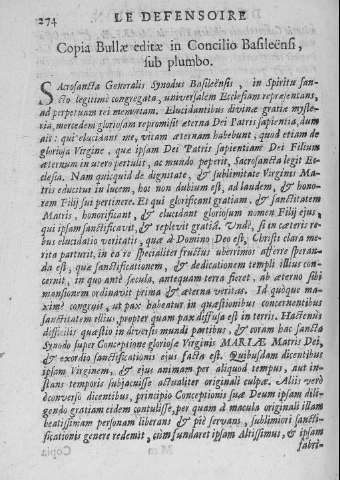 274 LE DEFENSOIRE
Copia Bullæ editæ in Concilio Basileënsi,
sub plumbo.
SAcrosancta Generalis Synodus Basileënsis, in Spiritu san-
cto legitimè congregata, universalem Ecclesiam repræsentans,
ad perpetuam rei memoriam. Elucidantibus divinæ gratiæ myste-
ria, mercedem gloriosam repromisit æterna Dei Patris sapientia, dum
ait: qui elucidant me, vitam æternam habebunt, quod etiam de
gloriosa Virgine, quæ ipsam Dei Patris sapientiam Dei Filium
æternum in utero pertulit, ac mundo peperit, Sacrosancta legit Ec-
clesia. Nam quicquid de dignitate, & sublimitate Virginis Ma-
tris educitur in lucem, hoc non dubium est, ad laudem, & hono-
rem Filij sui pertinere. Et qui glorificant gratiam, & sanctitatem
Matris, honorificant, & elucidant gloriosum nomen Filij ejus,
qui ipsam sanctificavit, & replevit gratiâ. Unde, si in cæteris re-
bus elucidatio veritatis, quæ à Domino Deo est, Christi clara me-
rita parturit, in ea re specialiter fructus uberrimos afferre speran-
da est, quæ sanctificationem, & dedicationem templi illius con-
cernit, in quo ante sæcula, antequam terra fieret, ab æterno sibi
mansionem ordinavit prima & æterna veritas. Id quoque ma-
ximè congruit, ut pax habeatur in quæstionibus concernentibus
sanctitatem illius, propter quam pax diffusa est in terris. Hactenùs
difficilis quæstio in diversis mundi partibus, & coram hac sancta
Synodo super Conceptione gloriosæ Virginis MARIÆ Matris Dei,
& exordio sanctificationis ejus facta est. Quibusdam dicentibus
ipsam Virginem, & ejus animam per aliquod tempus, aut in-
stans temporis subjacuisse actualiter originali culpæ. Aliis verò
è converso dicentibus, principio Conceptionis suæ Deum ipsam dili-
gendo gratiam eidem contulisse, per quam à macula originali illam
beatissimam personam liberans & piè servans, sublimiori sancti-
ficationis genere redemit, cùm fundaret ipsam Altissimus, & ipsam
fabri-